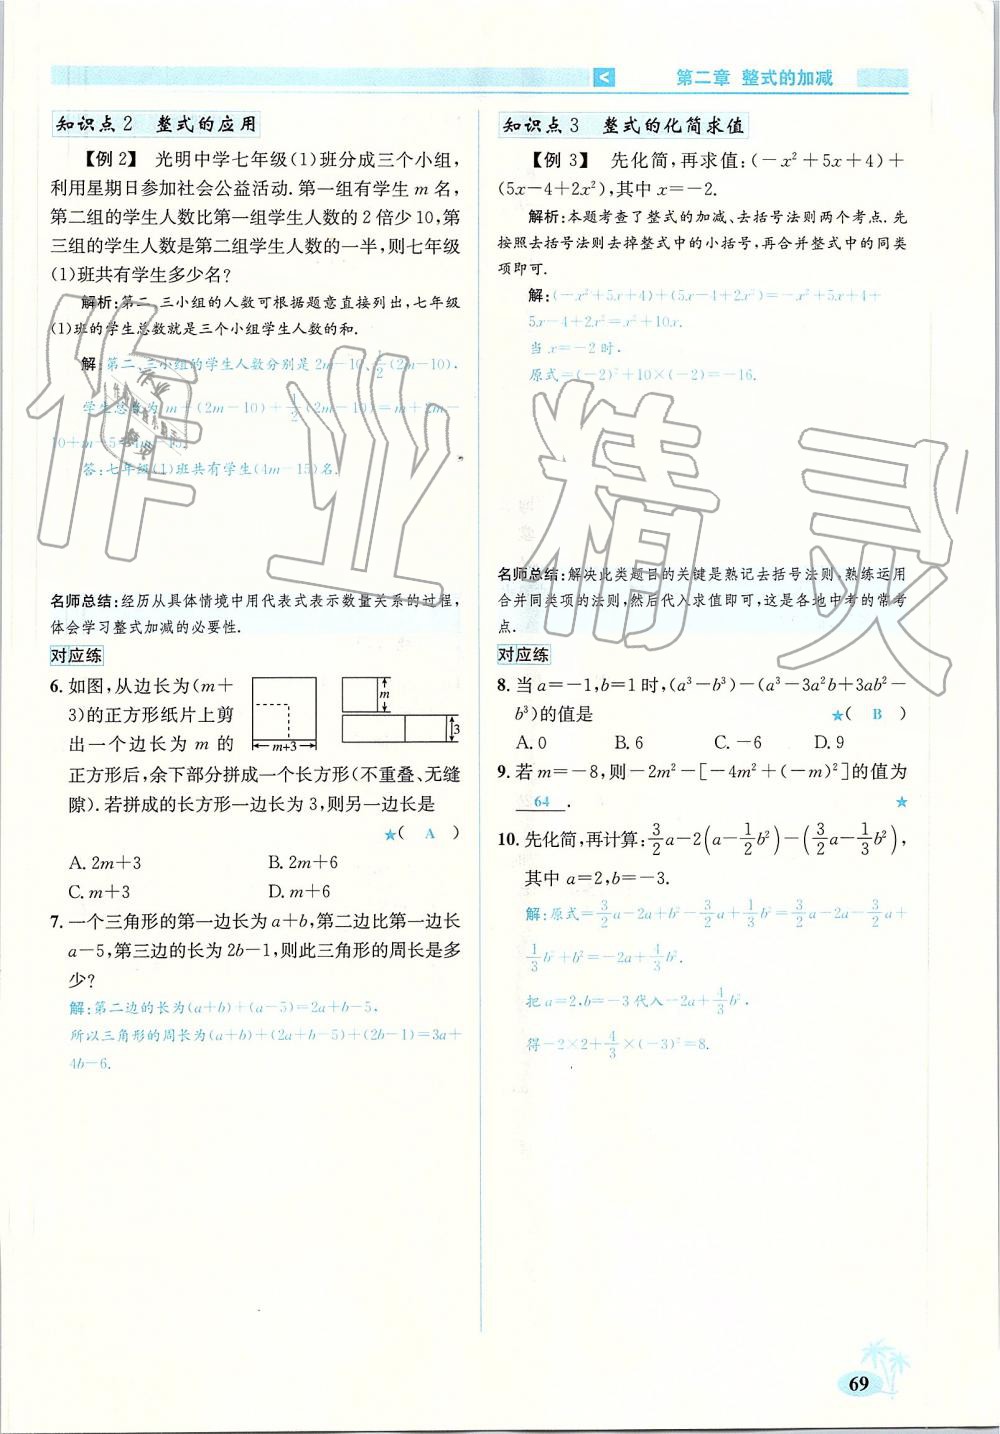 <
第二章 整式的加减
知识点2 整式的应用
【例2】 光明中学七年级(1)班分成三个小组,
利用星期日参加社会公益活动.第一组有学生m名,
第二组的学生人数比第一组学生人数的2倍少10,第
三组的学生人数是第二组学生人数的一半,则七年级
(1)班共有学生多少名?
解析:第二、三小组的人数可根据题意直接列出,七年级
(1)班的学生总数就是三个小组学生人数的和.
解:第二、三小组的学生人数分别是2m-10、1/2(2m-10).
学生总数为m+(2m-10)+1/2(2m-10)=m+2m-
10+m-5=4m-15.
答:七年级(1)班共有学生(4m-15)名.
名师总结:经历从具体情境中用代表式表示数量关系的过程,
体会学习整式加减的必要性.
对应练
6.如图,从边长为(m+
3)的正方形纸片上剪
出一个边长为m的
正方形后,余下部分拼成一个长方形(不重叠、无缝
隙).若拼成的长方形一边长为3,则另一边长是
★( A )
m+3
m
3
A.2m+3 B.2m+6
C.m+3 D.m+6
7.一个三角形的第一边长为a+b,第二边比第一边长
a-5,第三边的长为2b-1,则此三角形的周长是多
少?
解:第二边的长为(a+b)+(a-5)=2a+b-5,
所以三角形的周长为(a+b)+(2a+b-5)+(2b-1)=3a+
4b-6.
知识点3 整式的化简求值
【例3】 先化简,再求值:(-x²+5x+4)+
(5x-4+2x²),其中x=-2.
解析:本题考查了整式的加减、去括号法则两个考点.先
按照去括号法则去掉整式中的小括号,再合并整式中的同类
项即可.
解:(-x²+5x+4)+(5x-4+2x²)=-x²+5x+4+
5x-4+2x²=x²+10x.
当x=-2时.
原式=(-2)²+10×(-2)=-16.
名师总结:解决此类题目的关键是熟记去括号法则,熟练运用
合并同类项的法则,然后代入求值即可,这是各地中考的常考
点.
对应练
8.当a=-1,b=1时,(a³-b³)-(a³-3a²b+3ab²-
b³)的值是 ★( B )
A.0 B.6 C.-6 D.9
9.若m=-8,则-2m²-[-4m²+(-m)²]的值为
64 . ★
10.先化简,再计算:3/2a-2(a-1/2b²)-(3/2a-1/3b²),
其中a=2,b=-3.
解:原式=3/2a-2a+b²-3/2a+1/3b²=3/2a-2a-3/2a+
1/3b²+b²=-2a+4/3b².
把a=2,b=-3代入-2a+4/3b²,
得-2×2+4/3×(-3)²=8.
作业精灵
69